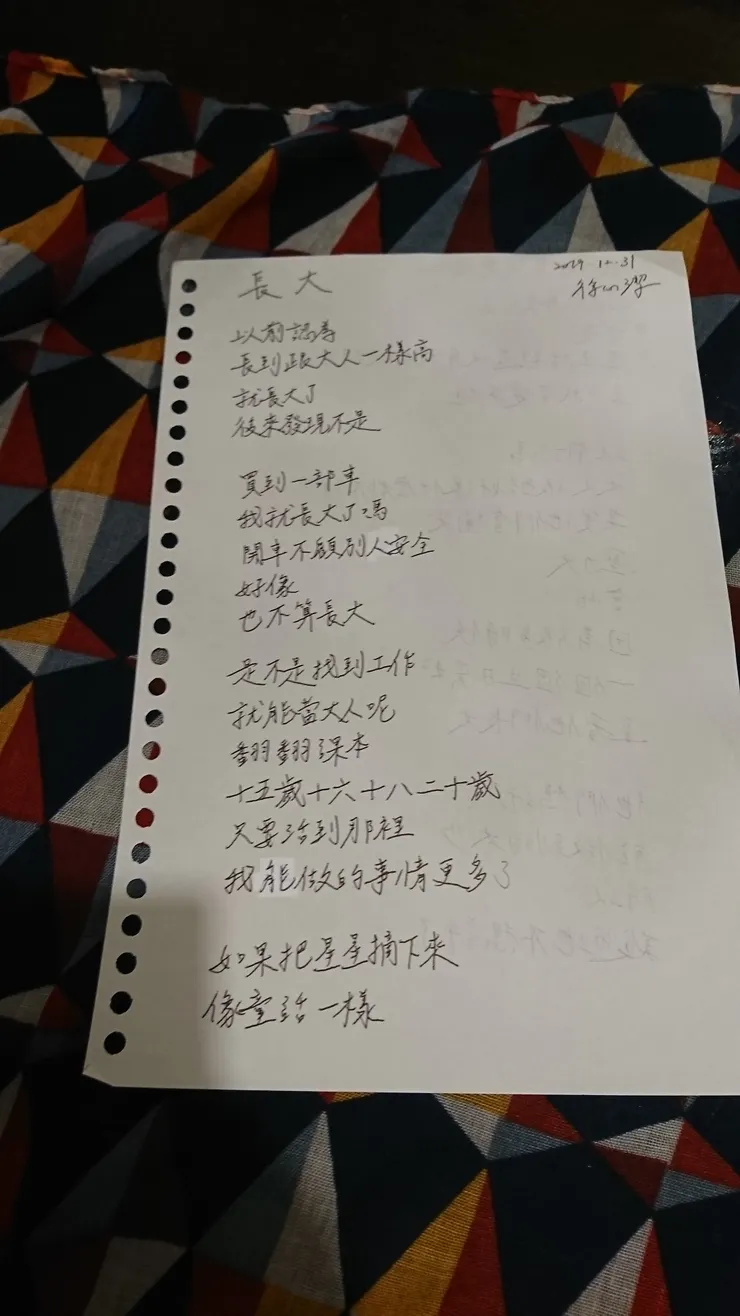 長大
2019 12.31
以前認為
長到跟大人一樣高
就長大了
後來發現不是
買到一部車
我就長大了嗎
開車不顧別人安全
好像
也不算長大
是不是找到工作
就能當大人呢
翻翻課本
十五歲十六十八二十歲
只要活到那裡
我能做的事情更多了
如果把星星摘下來
像童話一樣